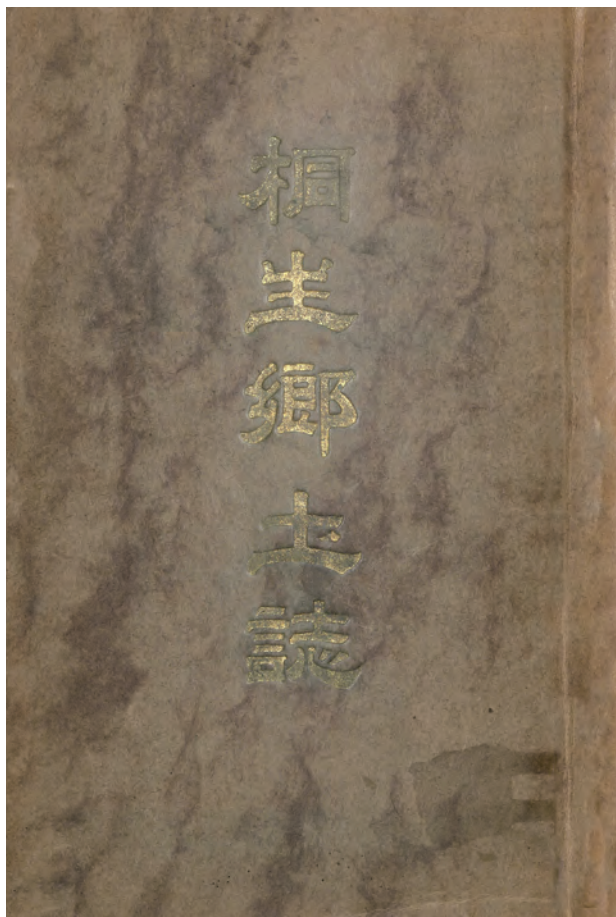 桐生郷土誌